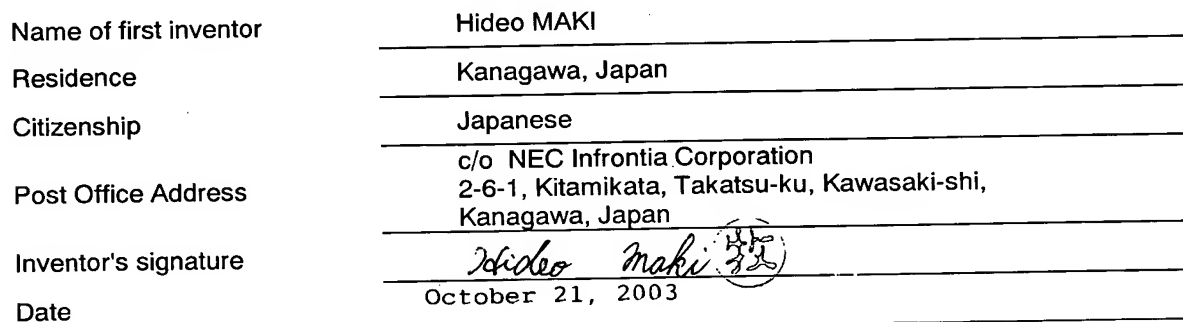 Name of first inventor Hideo MAKI
Residence Kanagawa, Japan
Citizenship Japanese
c/o NEC Infrontia Corporation
Post Office Address 2-6-1, Kitamikata, Takatsu-ku, Kawasaki-shi,
Kanagawa, Japan
Inventor's signature Hideo Maki
Date October 21, 2003